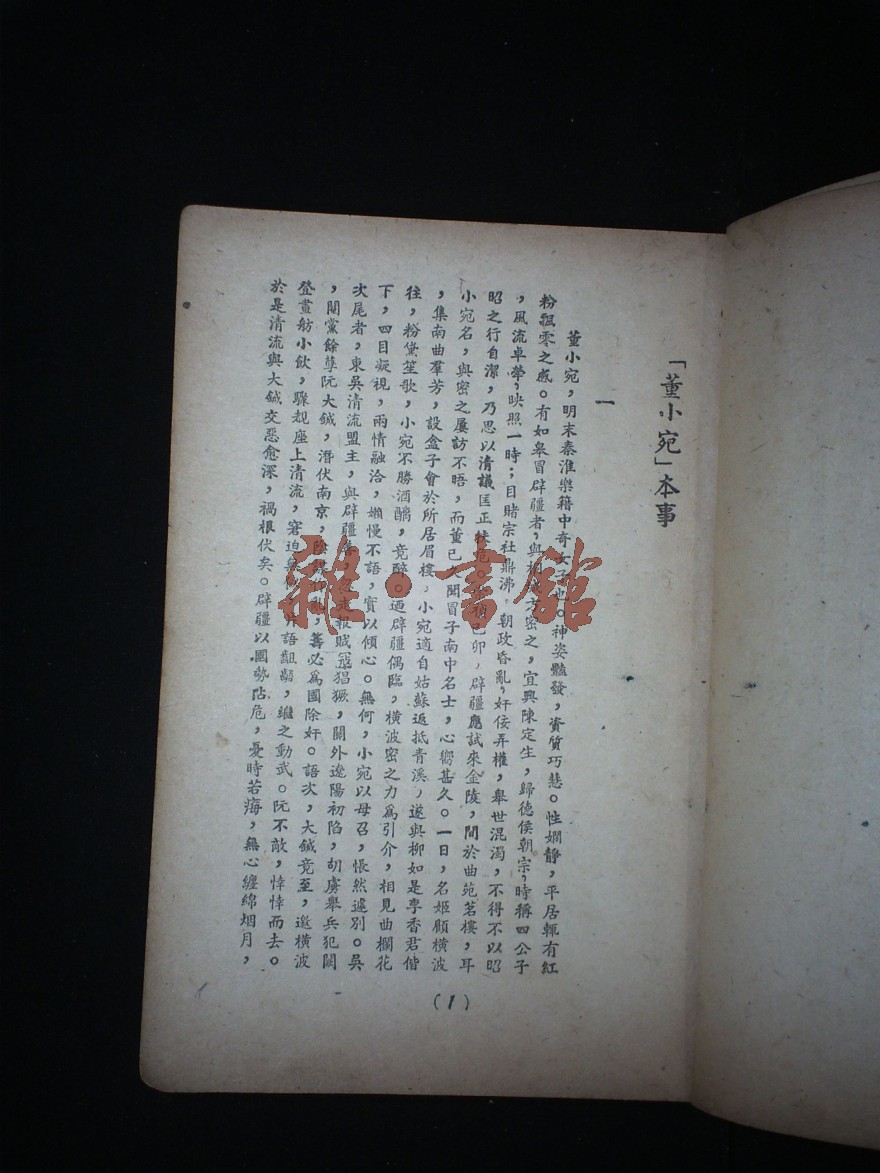 「董小宛」本事
一
董小宛，明末秦淮樂籍中奇女子也。神姿豔發，資質巧慧。性嫻靜，平居輒有紅
粉飄零之感。有如皋冒辟疆者，與桐城方密之，宜興陳定生，歸德侯朝宗，時稱四公子
，風流卓犖，映照一時；目睹宗社鼎沸，朝政昏亂，奸佞弄權，舉世混濁，不得不以昭
昭之行自潔，乃思以清議匡正扶危。己卯，辟疆應試來金陵，間於曲苑茗樓，耳
小宛名，與密之屢訪不晤，而董已久聞冒子南中名士，心嚮甚久。一日，名姬顧橫波
，集南曲羣芳，設盒子會於所居眉樓，小宛適自姑蘇返抵青溪，遂與柳如是李香君偕
往，粉黛笙歌，小宛不勝酒酬，竟醉。迺辟疆偶臨，橫波密之力為引介，相見曲欄花
下，四目凝視，兩情融洽，嬾慢不語，實以傾心。無何，小宛以母召，悵然遽別。吳
次尾者，東吳清流盟主，與辟疆善，走報賊寇猖獗，關外遼陽初陷，胡虜舉兵犯闕
，閹黨餘孽阮大鋮，潛伏南京，陰謀作亂，籌必為國除奸。語次，大鋮竟至，邀橫波
登畫舫小飲，驟覩座上清流，窘迫無，片語齟齬，繼之動武。阮不敵，悻悻而去。
於是清流與大鋮交惡愈深，禍根伏矣。辟疆以國勢阽危，憂時若痗，無心纏綿烟月，
(1)
雜·書館